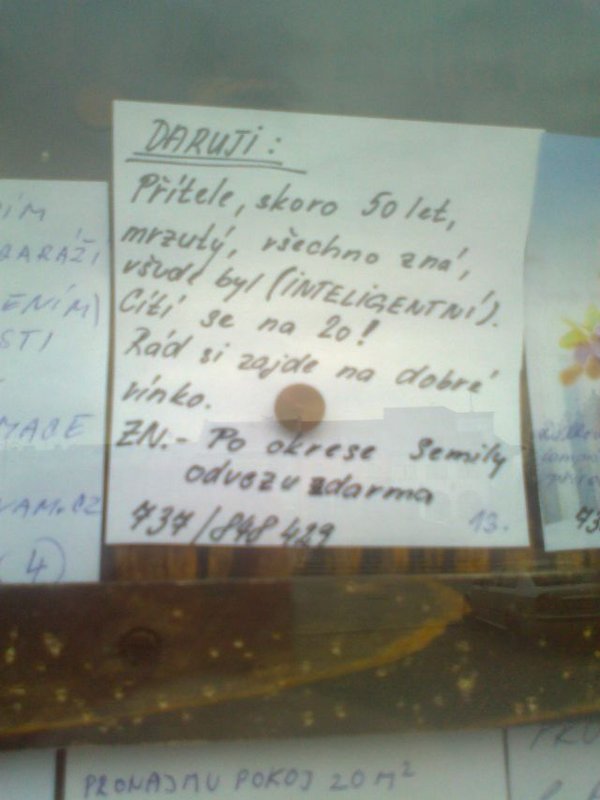 DARUJI:
Přítele, skoro 50 let,
mrzutý, všechno zná,
všude byl (INTELIGENTNÍ).
Cítí se na 20!
Rád si zajde na dobré
vínko.
ZN.- Po okrese Semily
odvezu zdarma
737/848 429
13.
GARÁŽI
ENÍM)
STI
MACE
VAM.CZ
(4)
73
PRONAJMU POKOJ 20 M²